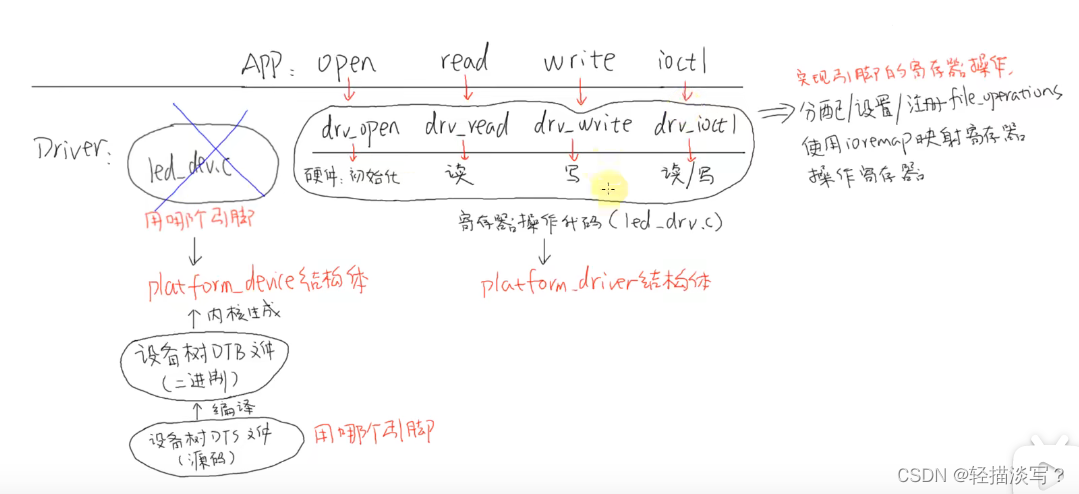 APP: open read write ioctl
实现引脚的寄存器操作.
分配/设置/注册file_operations
使用ioremap映射寄存器
操作寄存器
Driver:
led_dev.c
drv_open drv_read drv_write drv_ioctl
硬件:初始化 读 写 读/写
用哪个引脚
寄存器操作代码(led_drv.c)
platform_device结构体
platform_driver结构体
内核生成
设备树DTB文件
(二进制)
编译
设备树DTS文件
(源码)
用哪个引脚
CSDN @轻描淡写?